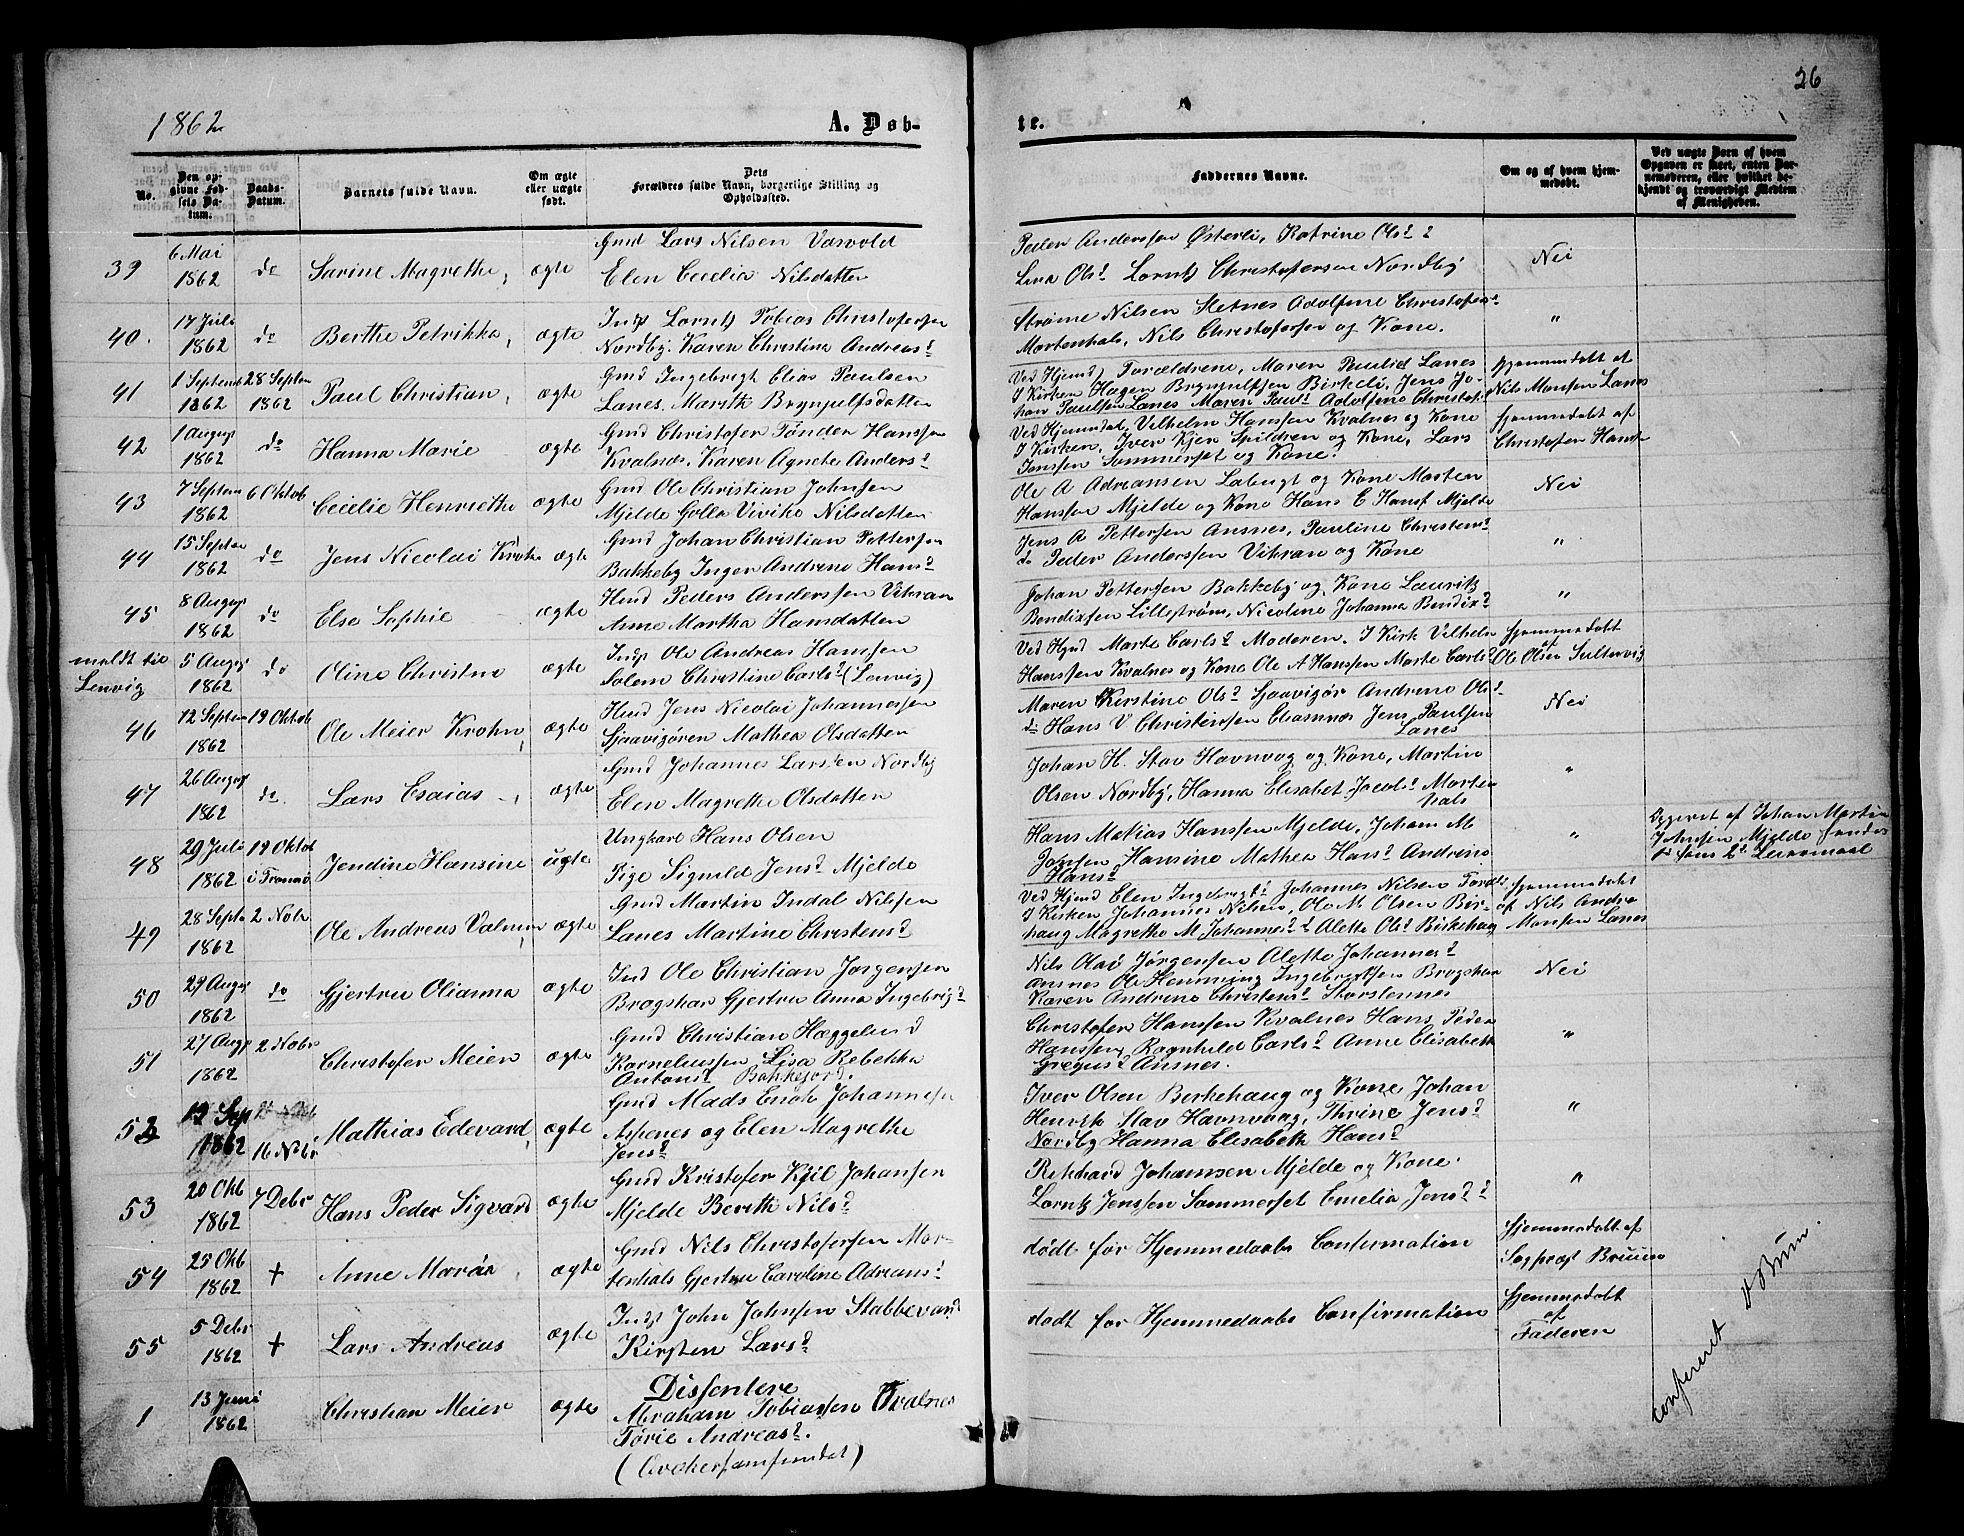 26
1862
A. Døb-
te.
No.
Den op-
givne Fød-
sels Da-
tum.
Daabs-
Datum.
Barnets fulde Navn.
Om ægte
eller uægte
født.
Dets
Forældres fulde Navn, borgerlige Stilling og
Opholdssted.
Faddernes Navne.
Om og af hvem hjem-
medøbt.
Ved uægte Børn af hvem
Opgaven er skeet, enten Bar-
nemoderen, eller hvilket be-
kjendt og troværdigt Medlem
af Menigheden.
39
6 Mai
1862
do
Sarine Magrethe,
ægte
Gmd Lars Nilsen Vasvold
Elen Cecelia Nilsdatter
Peder Anderssen Østerli, Katrine Olsd
Lina Olsd Lorntz Christofersen Nordby
Nei
40.
17 Juli
1862
do
Berthe Petrikka,
ægte
Inds Lorntz Tobias Christofersen
Nordby. Karen Christina Andreasd
Strøme Nilsen Sletnes Adolfine Christofer
Mortenhals, Nils Christofersen og Kone.
"
41
1 Septemb
1862
28 Septem
1862
Paul Christian,
ægte
Gmd Ingebrigt Elias Paulsen
Lanes. Marith Brynjulfsdatter
Ved Hjemd) Forældrene, Maren Paulsd Lanes
I Kirken Hagen Brynjulfsen Birkeli, Jens Jo-
han Paulsen Lanes Maren Pauls Adolfine Christof
hjemmedøbt af
Nils Monsen Lanes
42
1 August
1862
do
Hanna Marie
ægte
Gmd Christofer Tønder Hanssen
Kvalnes, Karen Agnethe Andersd
Ved Hjemmdøb, Vilhelm Hanssen Kvalnes og Kone
I Kirken, Iver Kjer Spildren og Kone, Lars
Jenssen Sommerset og Kone
hjemmedøbt af
Christofer Hanss
43
7 Septem
1862
6 Oktob
Cecilie Henriethe
ægte
Gmd Ole Christian Johnsen
Mjelde Golla Vivike Nilsdatter
Ole A Adreansen Labugt og Kone Morten
Hanssen Mjelde og Kone Hans E Hanss Mjelde
Nei
44
15 Septem
1862
do
Jens Nicolai Krohn
ægte
Gmd Johan Christian Pettersen
Bakkeby Inger Andrine Hansd
Jens A Pettersen Ansnes, Pauline Christensd
do Peder Anderssen Vikran og Kone
"
45
8 August
1862
do
Else Sophie
ægte
Hmd Peders Anderssen Vikran
Anne Martha Hansdatter
Johan Pettersen Bakkeby og Kone Lauritz
Bendixsen Lillestrøm, Nicoline Johanna Bendixd
"
meldt til
Lenvig
5 August
1862
do
Oline Christine
ægte
Inds Ole Andreas Hanssen
Solem Christine Carlsd (Lenvig)
Ved Hjmd Marte Carlsd Moderen. I Kirk Vilhelm
Hanssen Kvalnes og Kone Ole A Hanssen Marte Carlsd
hjemmedøbt
af
Ole Olsen Sultenvig
46
12 Septem
1862
19 Oktob
Ole Meier Krohn,
ægte
Hmd Jens Nicolai Johannessen
Sjaavigøren Mathea Olsdatter
Maren Kirstine Olsd Sjaavigør Andrine Olsd
do Hans V Christenssen Eliasnæs Jens Paulsen
Lanes
Nei
47
26 August
1862
do.
Lars Esaias
ægte
Gmd Johannes Larssen Nordby
Elen Magrethe Olsdatter
Johan H. Stav Havnvag og Kone, Martin
Olsen Nordby, Hanna Elisabet Jacobsd Morten
hals
"
48
29 Juli
1862
19 Oktob
i Tromsø
Jendine Hansine
uægte
Ungkarl Hans Olsen
Pige Signild Jensd Mjelde
Hans Matias Hanssen Mjelde, Johan M
Jonsen Hansine Mathea Hansd Andrine
Hansd
"
Opgivet af Johan Martin
Johnsen Mjelde hendes
1ste hans 2det Leiermaal
49
28 Septe
1862
2 Nobr
Ole Andreas Valnum
ægte
Gmd Martin Indal Nilssen
Lanes Martine Christensd
Ved Hjmd Elen Ingebrigtsd Johannes Nilsen
I Kirken Johannes Nilsen, Ole M. Olsen Bir-
haug Magrethe M Johannesd Alette Olsd Birkehaug
hjemmedøbt
af Nils Andre
Monsen Lanes
50
29 August
1862
do
Gjertru Olianna
ægte
Ind Ole Christian Jørgensen
Brogshan Gjertru Anna Ingebrigd
Nils Olai Jørgensen Alette Johannesd
Ansnes Ole Henning Ingebrigtsen Brogshan
Karen Andrine Christensd Storstennes
Nei
51
27 Augs
1862
2 Nobr
Christofer Meier
ægte
Gmd Christian Hæggelund
Korneliussen Lisa Rebekka
Antonsd Bakkejord.
Christofer Hanssen Kvalnes Hans Peder
Hanssen, Ragnhild Carlsd Anne Elisabeth
Gregusd Ansnes.
"
52
13 Sep
1862
16 Nobr
Mathias Edevard,
ægte
Gmd Mads Erick Johannesen
Aspenes og Elen Magrethe
Jensd
Iver Olsen Birkehaug og Kone Johan
Henrik Stav Havnvaag, Thrine Jensd
Nordby Hanna Elisabeth Hansd
"
53
20 Okb
1862
7 Debr
Hans Peder Sigvard
ægte
Gmd Kristofer Kjil Johansen
Mjelde Berith Nilsd
Rikhard Johansen Mjelde og Kone.
Lorntz Jenssen Sommerset Emelia Jensd
"
54
25 Okb
1862
+
Anne Maria
ægte
Gmd Nils Christofersen Mor-
tenhals Gjertru Caroline Adriansd
dødt før Hjemmedaabs Confirmation
hjemmedøbt af
Sogprest Bruun
55
5 Debr
1862
+
Lars Andreas
ægte
Inds John Johnsen Stabbevand
Kirsten Larsd
dødt før Hjemmedaabs Confirmation
hjemmedøbt
af
Faderen
1
13 Juni
1862
Christian Meier
ægte
Dissentere
Abraham Tobiassen Kvalnes
Tørie Andreasd.
(Qvækersamfundet)
Conferert
Bruun.